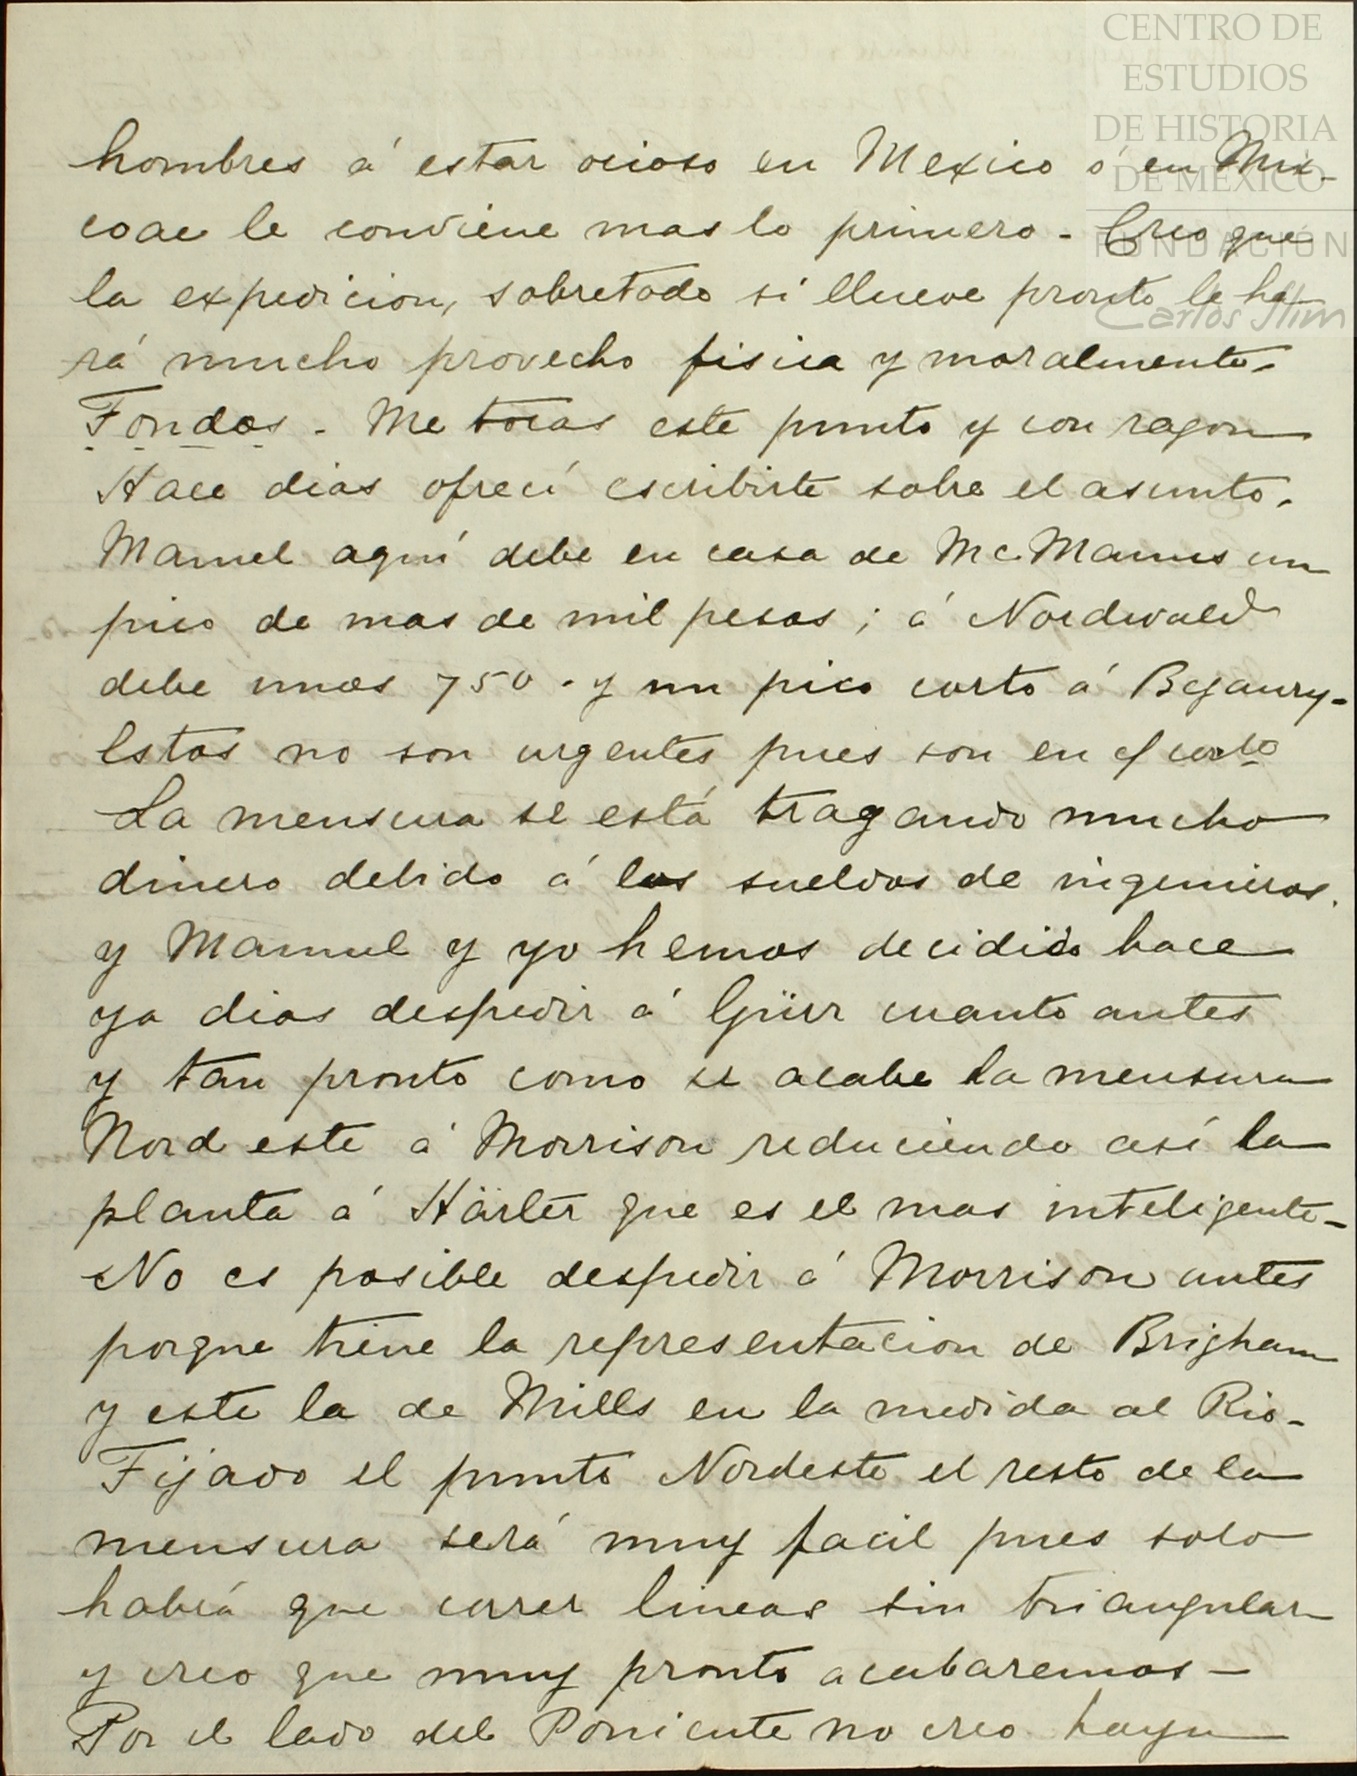 CENTRO DE
ESTUDIOS
DE HISTORIA
DE MÉXICO
FUNDACIÓN
Carlos Slim
hombres á estar ocioso en Mexico ó en Mix-
coac le conviene mas lo primero - Creo que
la expedicion, sobretodo si llueve pronto le ha
rá mucho provecho fisica y moralmente.
Fondos - Me tocas este punto y con razon
Hace dias ofrecí escribirte sobre el asunto.
Manuel aquí debe en casa de McManus un
pico de mas de mil pesos; á Nordwald
debe unos 750 - y un pico corto á Begaury-
Estos no son urgentes pues son en
La mensura se está tragando mucho
dinero debido á los sueldos de ingenieros.
y Manuel y yo hemos decidido hace
ya dias despedir á cuanto antes
y tan pronto como se acabe la mensura
Nord este á Morrison reduciendo así la
planta á Härter que es el mas inteligente-
No es posible despedir á Morrison antes
porque tiene la representacion de Brigham
y este la de Mills en la medida al Rio-
Fijado el punto Nordeste el resto de la
mensura será muy facil pues solo
habrá que correr lineas sin triangular
y creo que muy pronto acabaremos -
Por el lado del Poniente no creo haya